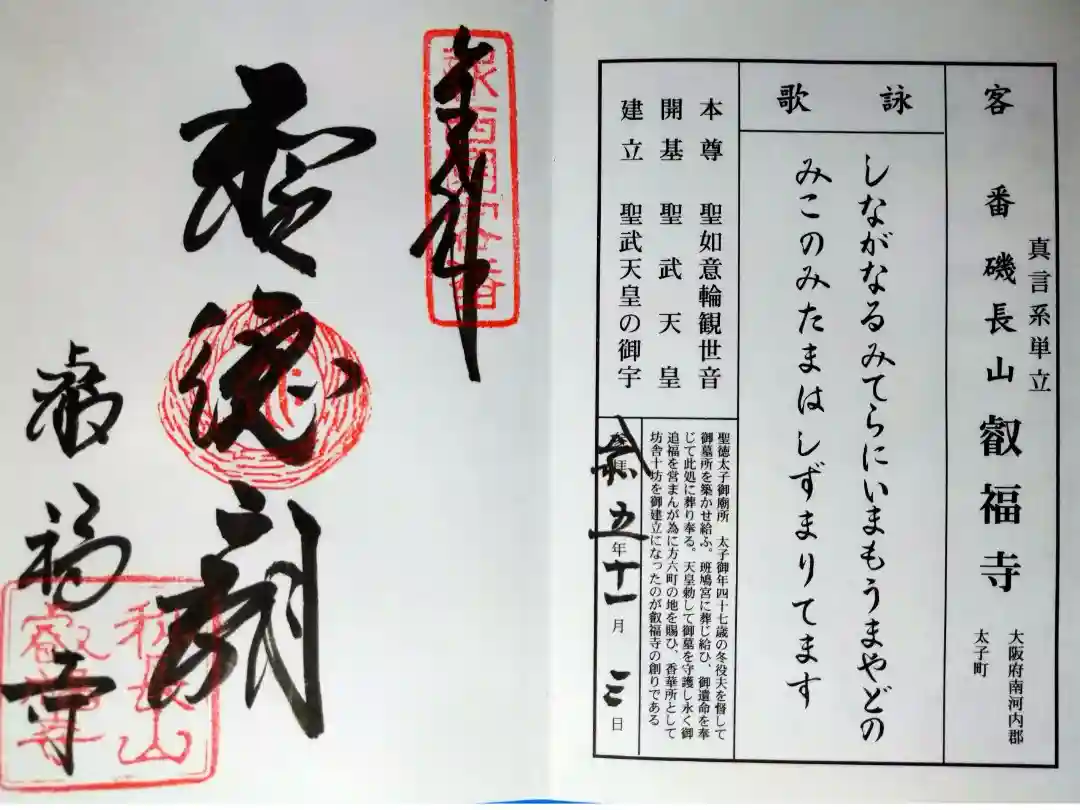 真言系単立
客番 磯長山 叡福寺
大阪府南河内郡
太子町
詠歌
しながなるみてらにいまもうまやどの
みこのみたまはしずまりてます
本尊 聖如意輪観世音
開基 聖武天皇
建立 聖武天皇の御宇
聖徳太子御廟所 太子御年四十七歳の冬役夫を督して
御墓所を築かせ給ふ。班鳩宮に薨じ給ひ、御遺命を奉
じて此処に葬り奉る。天皇勅して御墓を守護し永く御
追福を営まんが為に方六町の地を賜ひ、香華所として
坊舎十坊を御建立になったのが叡福寺の創りである
参拝 令和五年十一月三日
奉拝
新西国客番
聖徳廟
叡福寺
磯長山
叡福寺